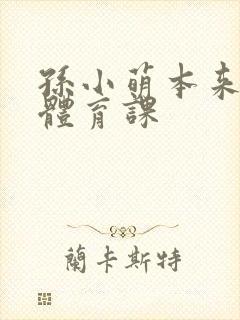 孫小萌本来
體育課
蘭卡斯特